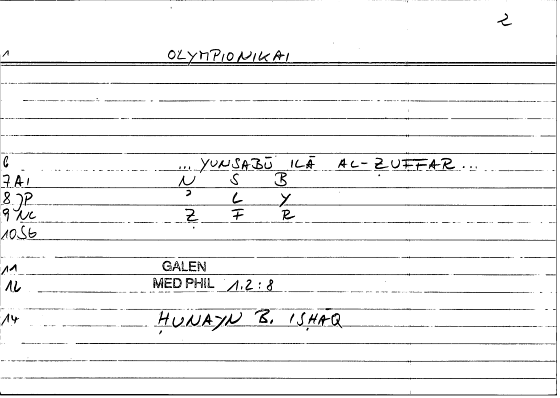 2
1 OLYMPIONIKAI
6 ... YUNSABŪ ILĀ AL-ẒUFFAR ...
7 AI N S B
8 JP ʾ L Y
9 NC Ẓ F R
10 SB
11 GALEN
12 MED PHIL 1.2:8
14 ḤUNAYN B. ISḤĀQ